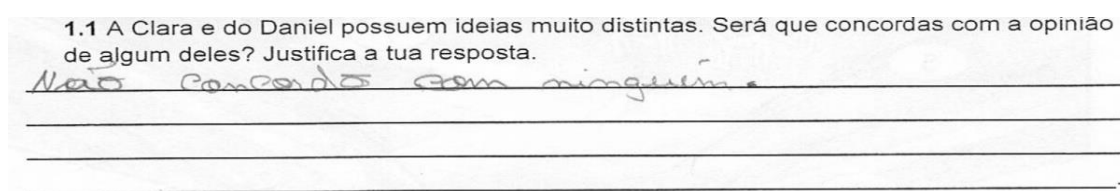 1.1 A Clara e do Daniel possuem ideias muito distintas. Será que concordas com a opinião
de algum deles? Justifica a tua resposta.
Não concordo com ninguém.